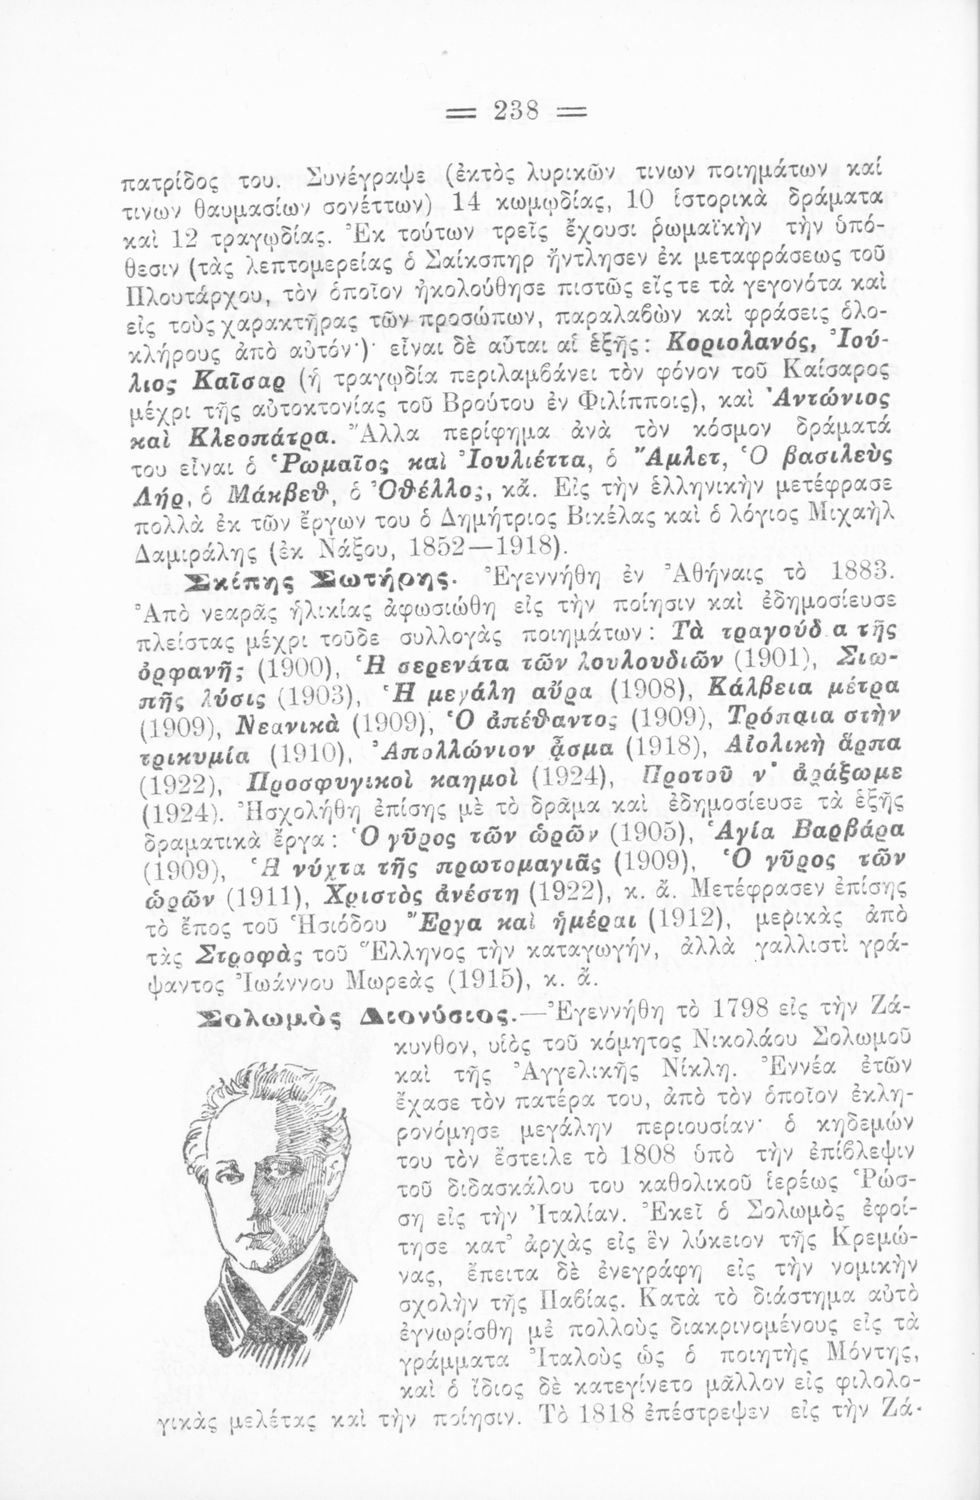 = 238 =
πατρίδος του. Συνέγραψε (ἐκτὸς λυρικῶν τινων ποιημάτων καί
τινων θαυμασίων σονέττων) 14 κωμῳδίας, 10 ἱστορικὰ δράματα
καὶ 12 τραγῳδίας. Ἐκ τούτων τρεῖς ἔχουσι ῥωμαϊκὴν τὴν ὑπό-
θεσιν (τὰς λεπτομερείας ὁ Σαίκσπηρ ἤντλησεν ἐκ μεταφράσεως τοῦ
Πλουτάρχου, τὸν ὁποῖον ἠκολούθησε πιστῶς εἴς τε τὰ γεγονότα καὶ
εἰς τοὺς χαρακτῆρας τῶν προσώπων, παραλαβὼν καὶ φράσεις ὁλο-
κλήρους ἀπὸ αὐτόν·)· εἶναι δὲ αὗται αἱ ἑξῆς: Κοριολανός, Ἰού-
λιος Καῖσαρ (ἡ τραγῳδία περιλαμβάνει τὸν φόνον τοῦ Καίσαρος
μέχρι τῆς αὐτοκτονίας τοῦ Βρούτου ἐν Φιλίπποις), καὶ Ἀντώνιος
καὶ Κλεοπάτρα. Ἄλλα περίφημα ἀνὰ τὸν κόσμον δράματά
του εἶναι ὁ Ῥωμαῖος καὶ Ἰουλιέττα, ὁ Ἄμλετ, Ὁ βασιλεὺς
Λήρ, ὁ Μάκβεθ, ὁ Ὀθέλλος, κἄ. Εἰς τὴν ἑλληνικὴν μετέφρασε
πολλὰ ἐκ τῶν ἔργων του ὁ Δημήτριος Βικέλας καὶ ὁ λόγιος Μιχαὴλ
Δαμιράλης (ἐκ Νάξου, 1852—1918).
Σκίπης Σωτήρης. Ἐγεννήθη ἐν Ἀθήναις τὸ 1883.
Ἀπὸ νεαρᾶς ἡλικίας ἀφωσιώθη εἰς τὴν ποίησιν καὶ ἐδημοσίευσε
πλείστας μέχρι τοῦδε συλλογὰς ποιημάτων: Τὰ τραγούδ α τῆς
ὀρφανῆς (1900), Ἡ σερενάτα τῶν λουλουδιῶν (1901), Σιω-
πῆς λύσις (1903), Ἡ μεγάλη αὔρα (1908), Κάλβεια μέτρα
(1909), Νεανικὰ (1909), Ὁ ἀπέθαντος (1909), Τρόπαια στὴν
τρικυμία (1910), Ἀπολλώνιον ᾆσμα (1918), Αἰολικὴ ἅρπα
(1922), Προσφυγικοὶ καημοὶ (1924), Προτοῦ ν' ἀράξωμε
(1924). Ἠσχολήθη ἐπίσης μὲ τὸ δρᾶμα καὶ ἐδημοσίευσε τὰ ἑξῆς
δραματικὰ ἔργα: Ὁ γῦρος τῶν ὡρῶν (1905), Ἁγία Βαρβάρα
(1909), Ἡ νύχτα τῆς πρωτομαγιᾶς (1909), Ὁ γῦρος τῶν
ὡρῶν (1911), Χριστὸς ἀνέστη (1922), κ. ἄ. Μετέφρασεν ἐπίσης
τὸ ἔπος τοῦ Ἡσιόδου Ἔργα καὶ ἡμέραι (1912), μερικὰς ἀπὸ
τὰς Στροφὰς τοῦ Ἕλληνος τὴν καταγωγήν, ἀλλὰ γαλλιστὶ γρά-
ψαντος Ἰωάννου Μωρεὰς (1915), κ. ἄ.
Σολωμὸς Διονύσιος.—Ἐγεννήθη τὸ 1798 εἰς τὴν Ζά-
κυνθον, υἱὸς τοῦ κόμητος Νικολάου Σολωμοῦ
καὶ τῆς Ἀγγελικῆς Νίκλη. Ἐννέα ἐτῶν
ἔχασε τὸν πατέρα του, ἀπὸ τὸν ὁποῖον ἐκλη-
ρονόμησε μεγάλην περιουσίαν· ὁ κηδεμών
του τὸν ἔστειλε τὸ 1808 ὑπὸ τὴν ἐπίβλεψιν
τοῦ διδασκάλου του καθολικοῦ ἱερέως Ῥώσ-
ση εἰς τὴν Ἰταλίαν. Ἐκεῖ ὁ Σολωμὸς ἐφοί-
τησε κατ' ἀρχὰς εἰς ἓν λύκειον τῆς Κρεμώ-
νας, ἔπειτα δὲ ἐνεγράφη εἰς τὴν νομικὴν
σχολὴν τῆς Παβίας. Κατὰ τὸ διάστημα αὐτὸ
ἐγνωρίσθη μὲ πολλοὺς διακρινομένους εἰς τὰ
γράμματα Ἰταλοὺς ὡς ὁ ποιητὴς Μόντης,
καὶ ὁ ἴδιος δὲ κατεγίνετο μᾶλλον εἰς φιλολο-
γικὰς μελέτας καὶ τὴν ποίησιν. Τὸ 1818 ἐπέστρεψεν εἰς τὴν Ζά-